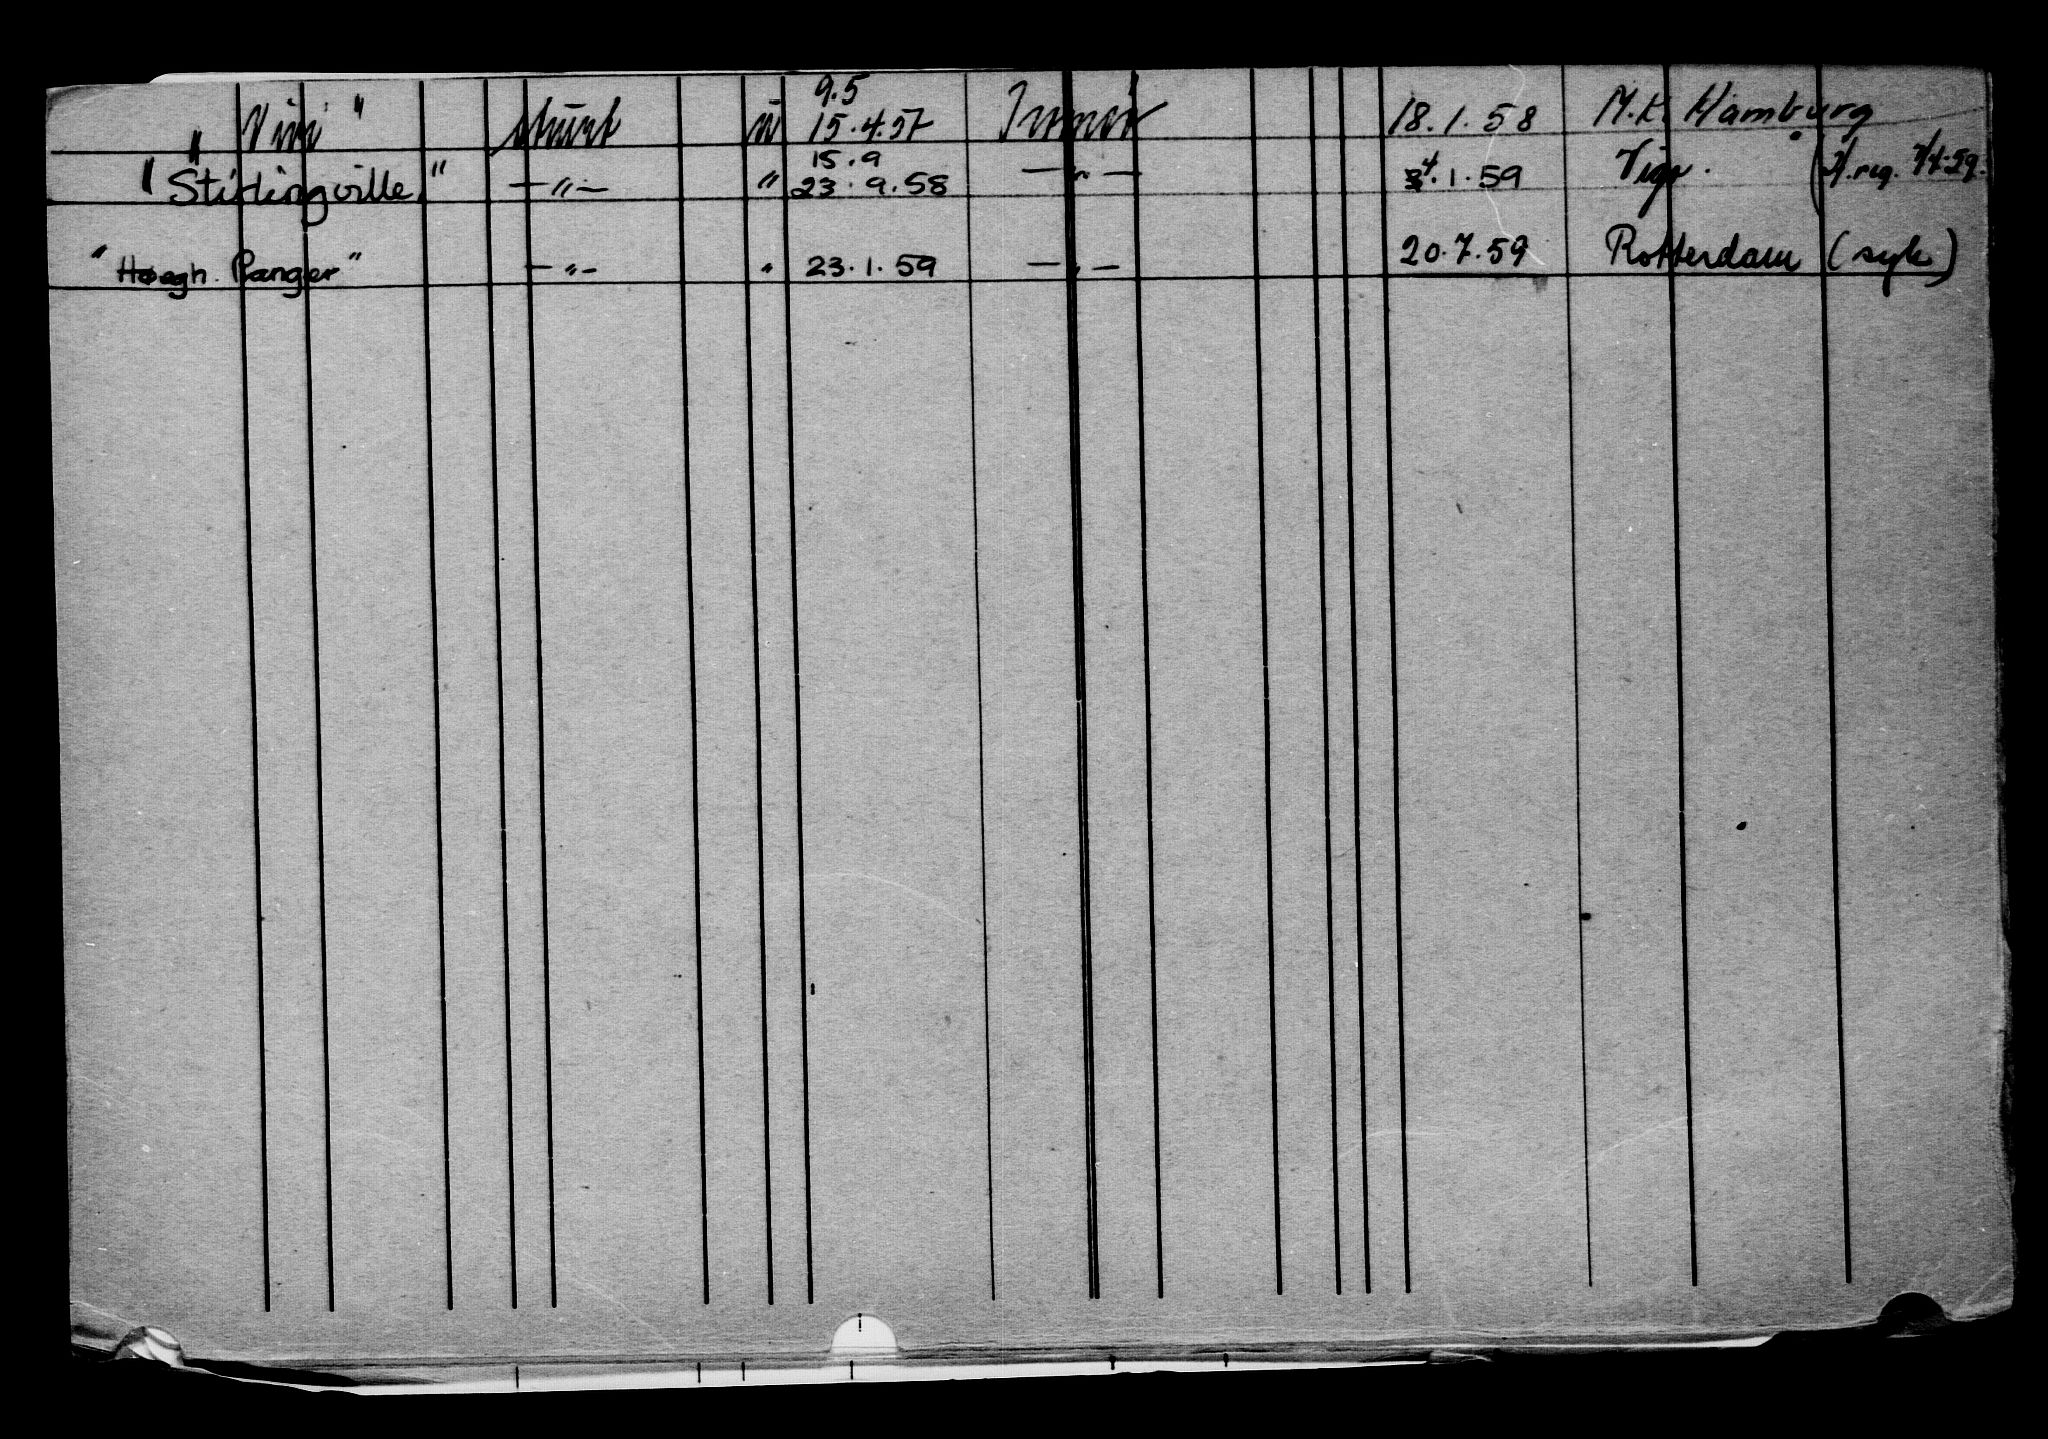 9.5
" Vivi " stuert u 15.4.57 Tromsö 18.1.58 M.K. Hamburg
15.9
" Stirlingville " — " — " 23.9.58 — " — 4.1.59 Vigo. (I/reg. 7/4-59.
" Høegh. Ranger " — " — " 23.1.59 — " — 20.7.59 Rotterdam (syk)